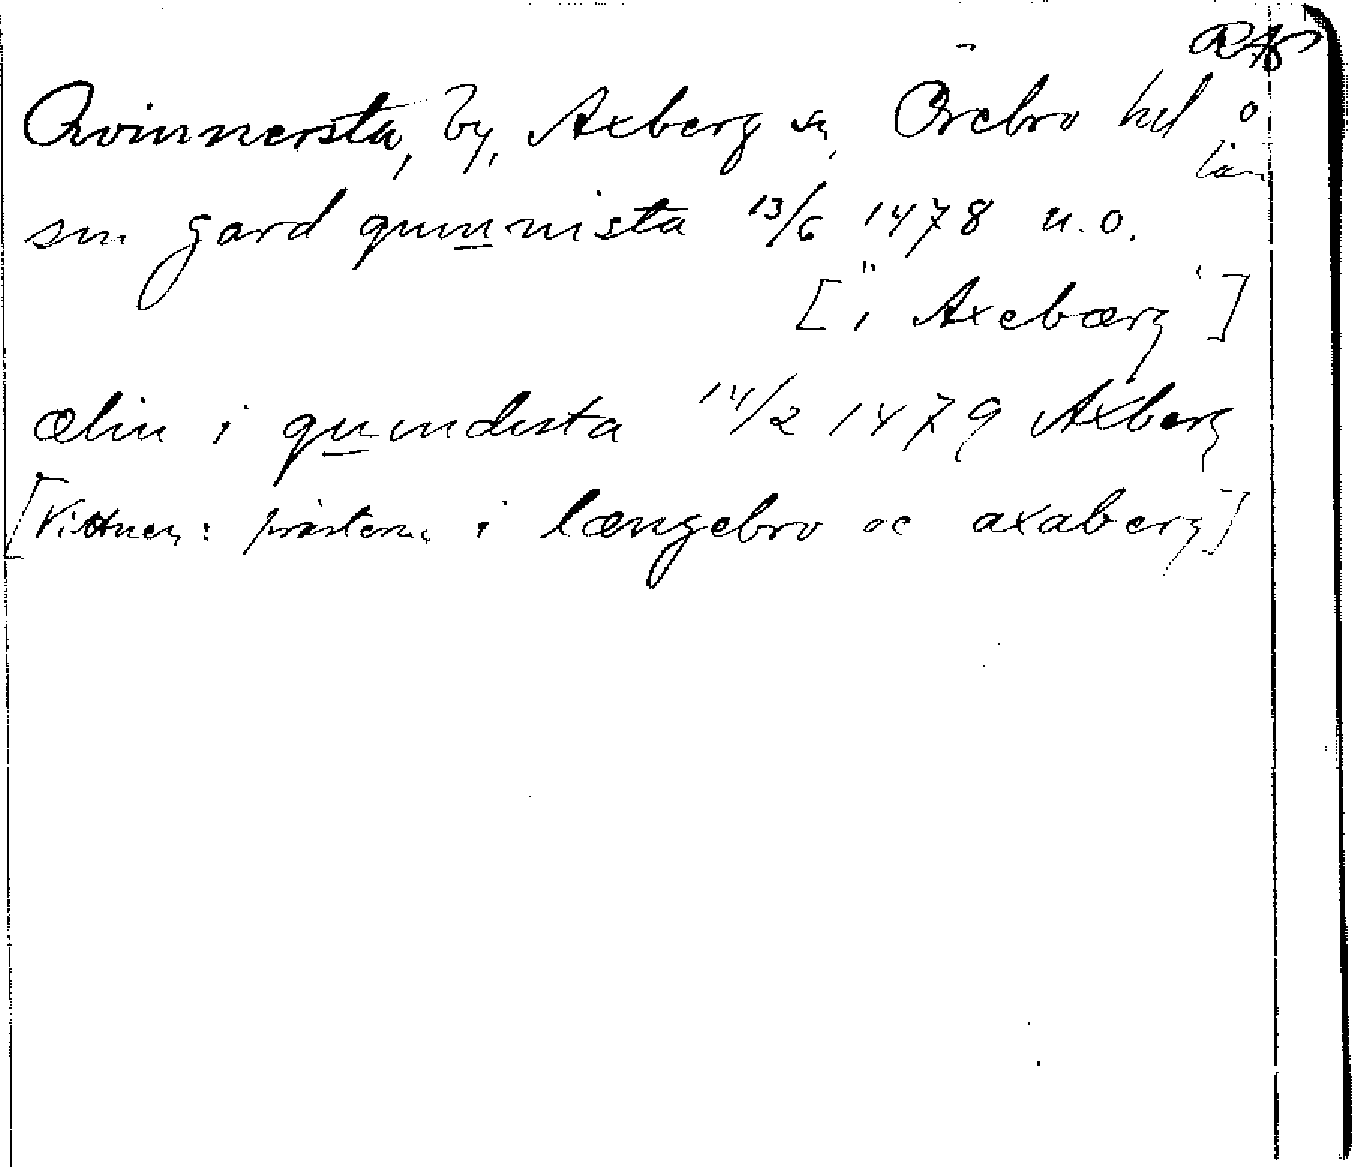 RAp
Qvinnersta, by, Axberg sn, Örebro hd o
län
sin gard qwinnista 13/6 1478 u.o.
["i Axebærg"]
ælin i qwindista 14/2 1479 Axberg
[Vittnen: prästerna i længebro oc axaberg]